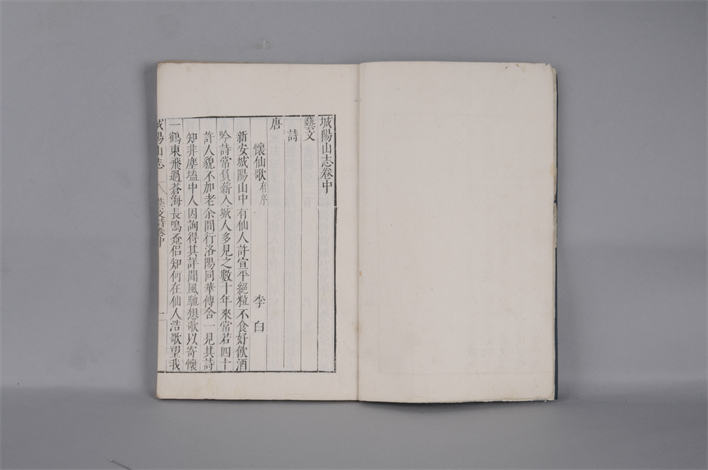 城陽山志卷中
藝文
詩
唐
懷仙歌有序 李白
新安城陽山中有仙人許宣平絕粒不食好飲酒
吟詩常負薪入城人多見之數十年來常若四十
許人貌不加老余間行洛陽同華傳舍一見其詩
知非塵壒中人因詢得其詳聞風馳想歌以寄懷
一鶴東飛過蒼海長鳴委侶知何在仙人浩歌望我
城陽山志 藝文詩卷中 一